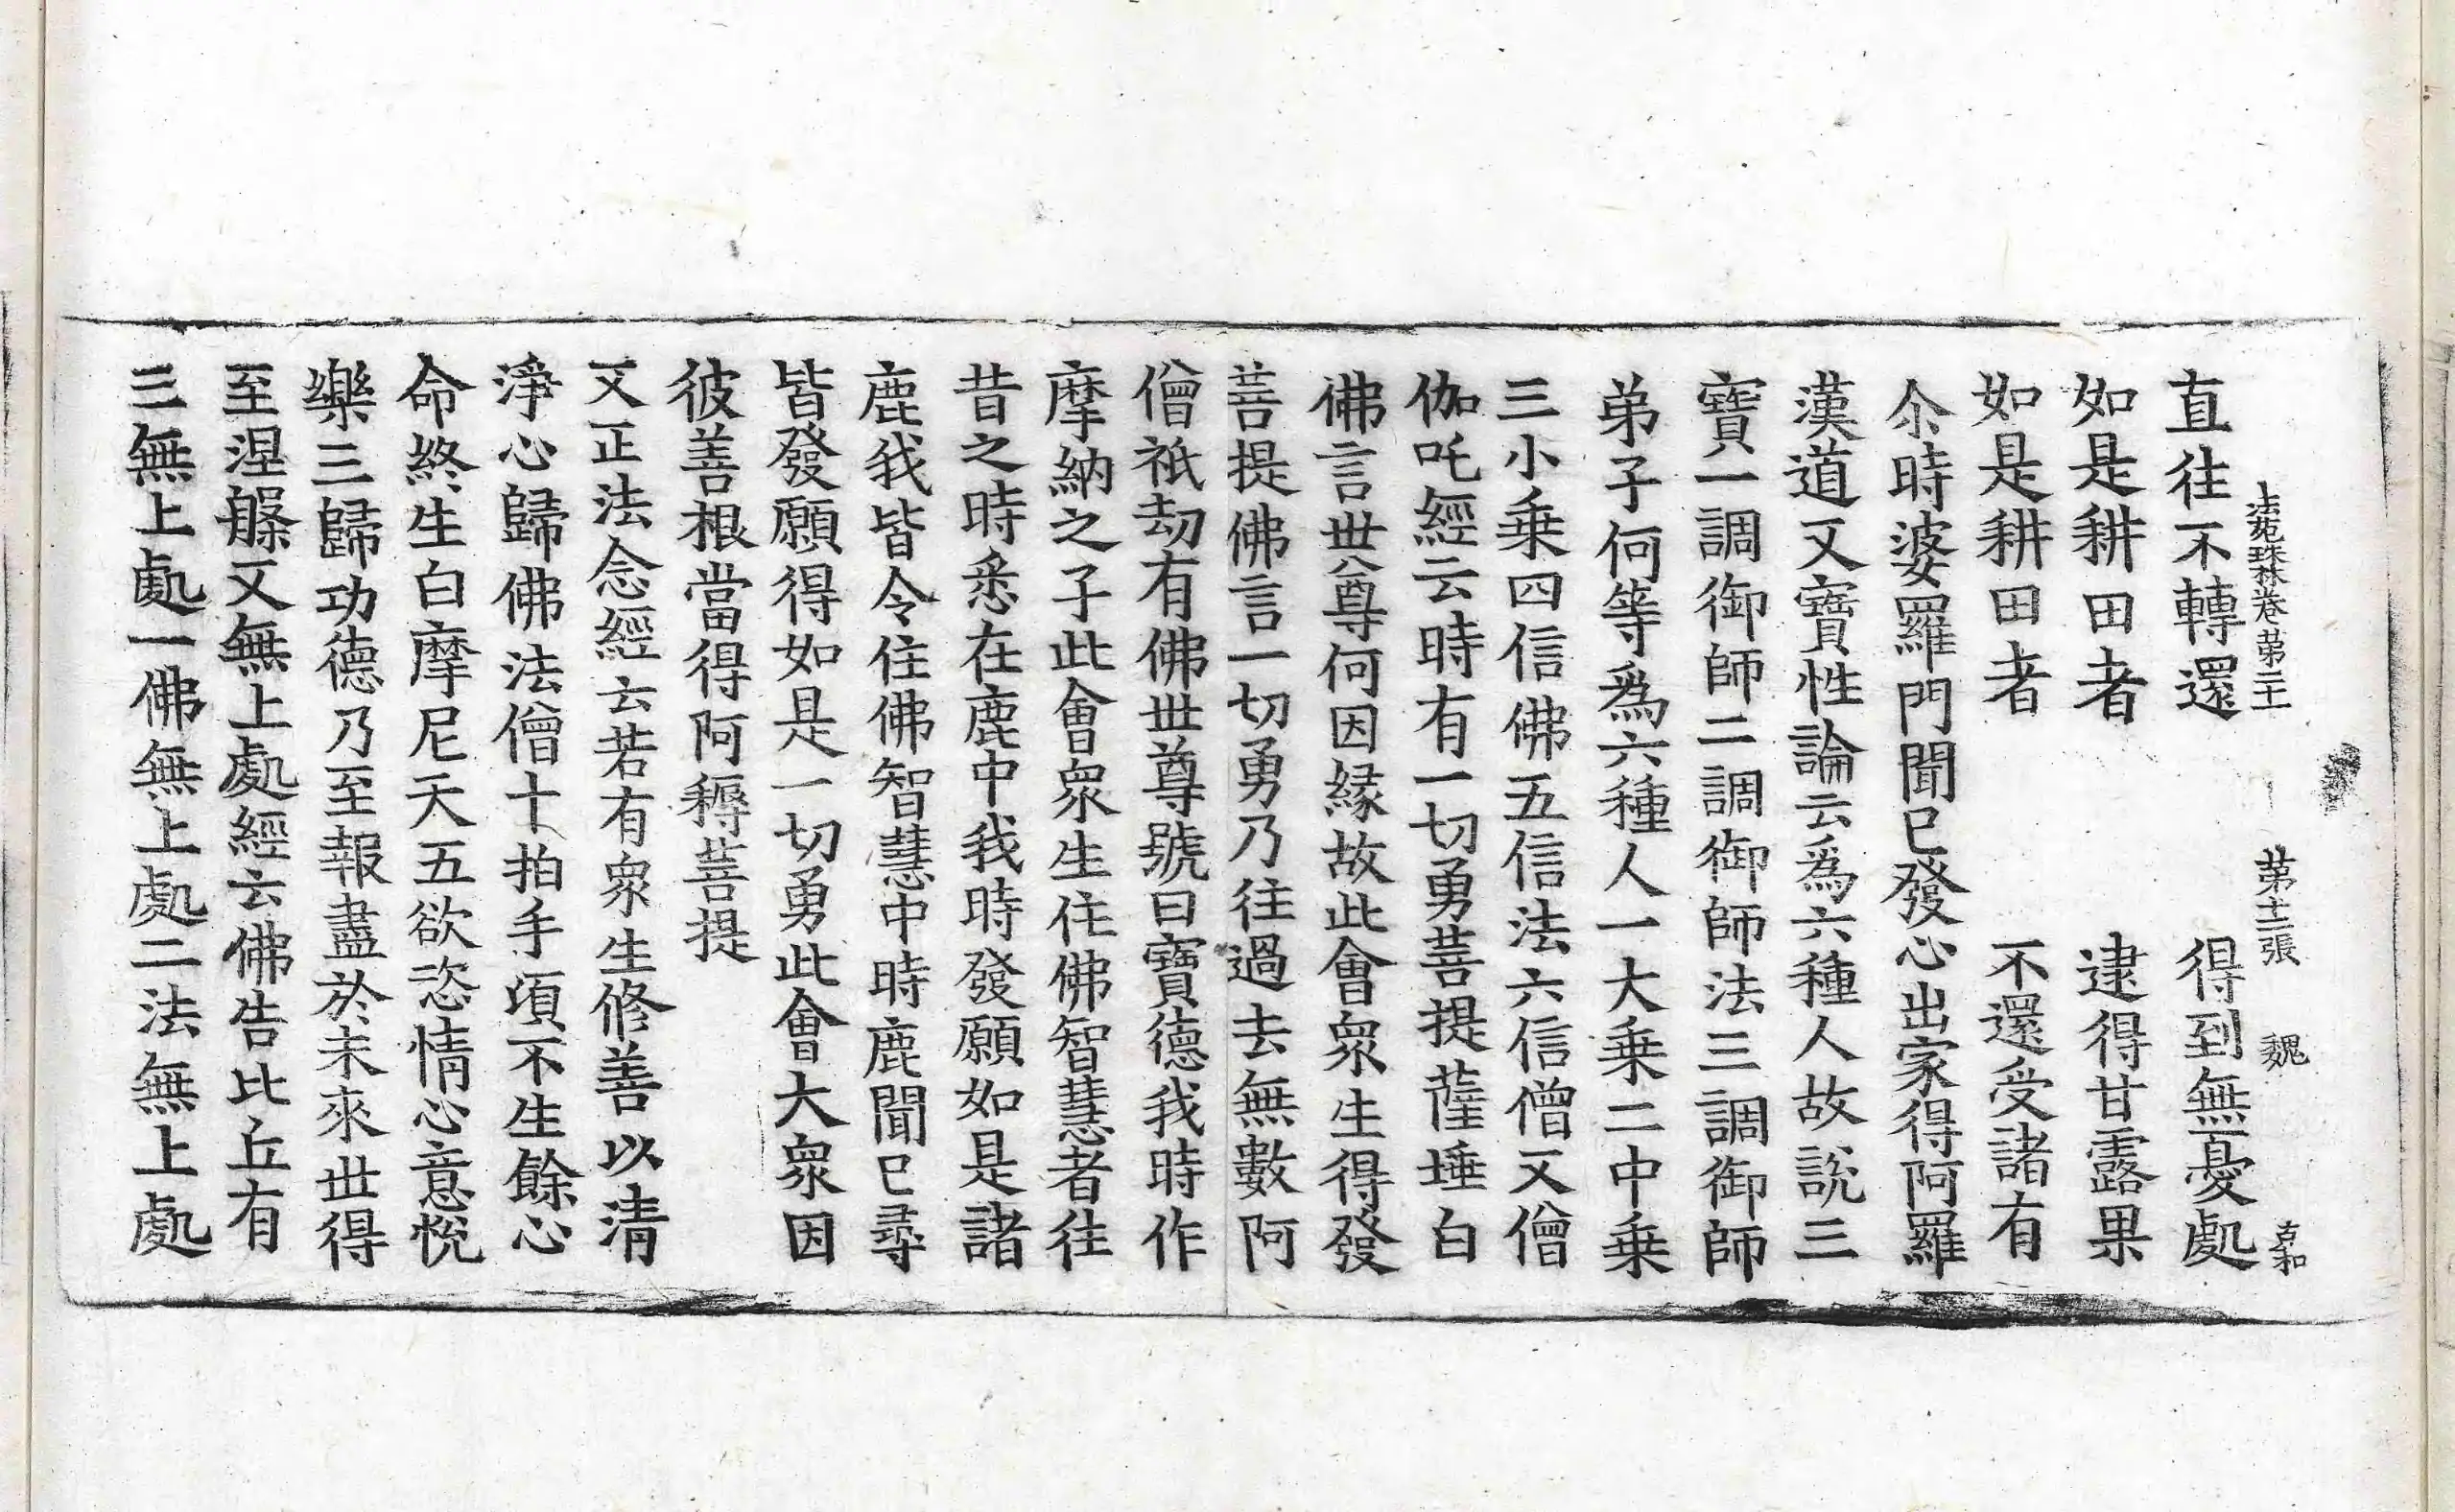 法苑珠林卷第二十 第十二張 魏 吉和
直往不轉還 得到無憂處
如是耕田者 逮得甘露果
如是耕田者 不還受諸有
尒時婆羅門聞已發心出家得阿羅
漢道又寶性論云爲六種人故說三
寶一調御師二調御師法三調御師
弟子何等爲六種人一大乗二中乗
三小乗四信佛五信法六信僧又僧
伽吒經云時有一切勇菩提薩埵白
佛言世尊何因緣故此會衆生得發
菩提佛言一切勇乃往過去無數阿
僧祇劫有佛世尊號曰寶德我時作
摩納之子此會衆生住佛智慧者往
昔之時悉在鹿中我時發願如是諸
鹿我皆令住佛智慧中時鹿聞已尋
皆發願得如是一切勇此會大衆因
彼善根當得阿耨菩提
又正法念經云若有衆生修善以清
淨心歸佛法僧十拍手頃不生餘心
命終生白摩尼天五欲恣情心意悅
樂三歸功德乃至報盡於未來世得
至涅槃又無上處經云佛告比丘有
三無上處一佛無上處二法無上處